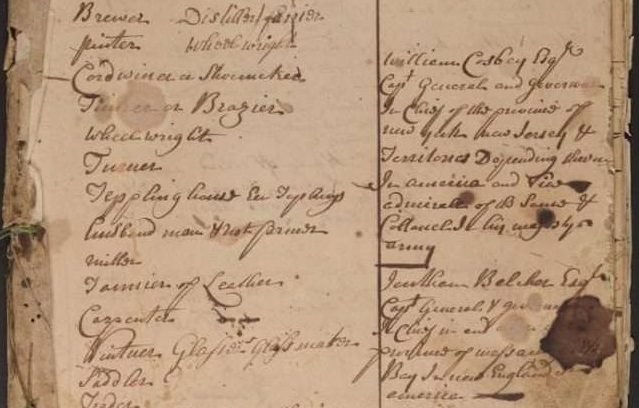 Brewer Distiller/farrier
pinter wheelwright
Cordwinder or Shoemaker
Tinker or Brazier
wheelwright
Turner
Teppling house En Tepling
husband man & not farmer
miller
Tannier of Leather
Carpenter
Vintner Glasier Glassmaker
Saddler
William Cosbey Esqr
Capt General and Governor
In Chief of the province of
new york new Jersey &
Territories Depending thereon
In america and Vice
admiral of the Same &
Collonel In his majestys
army
Jonathan Belcher Esqr
Capt General &
In Chief in and
province of
Bay In new England
america